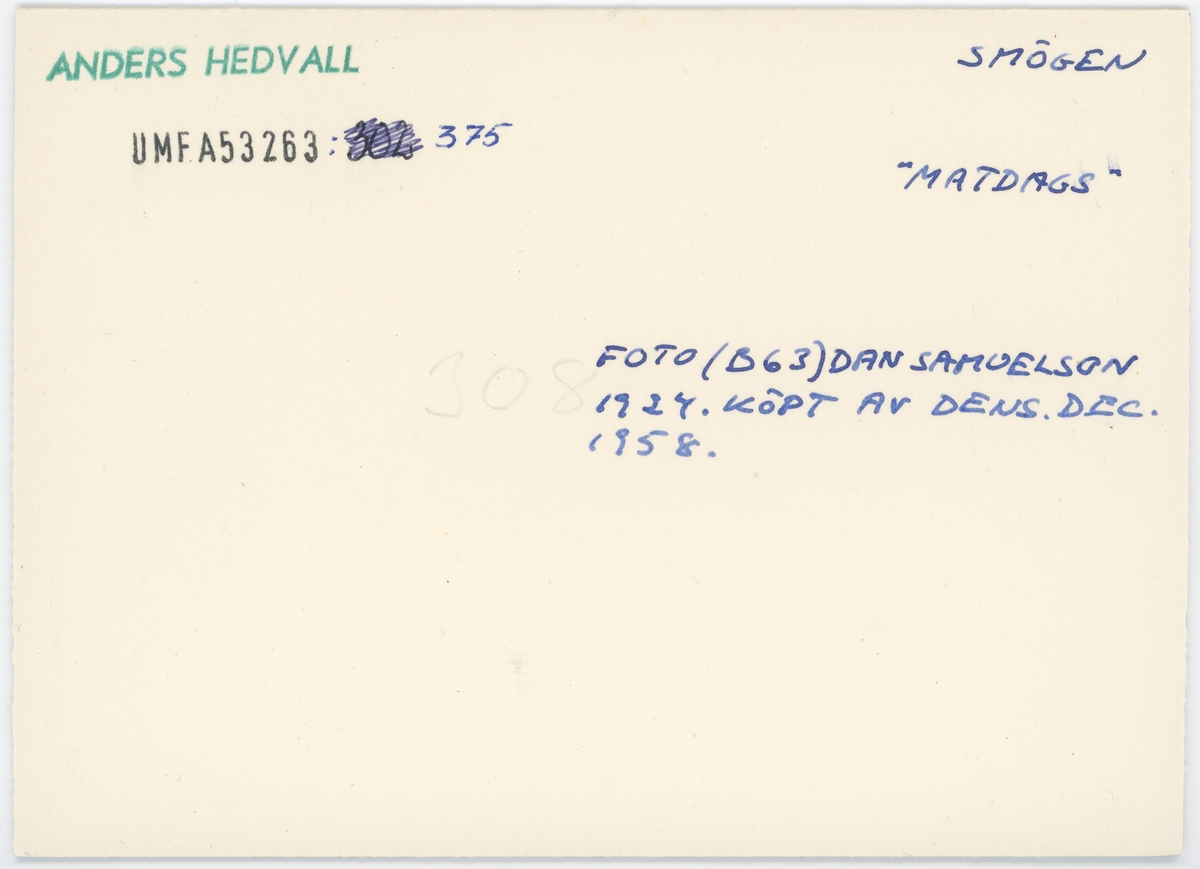 ANDERS HEDVALL
SMÖGEN
UMFA53263: 302 375
"MATDAGS"
308
FOTO (B63) DAN SAMUELSON
1924. KÖPT AV DENS. DEC.
1958.